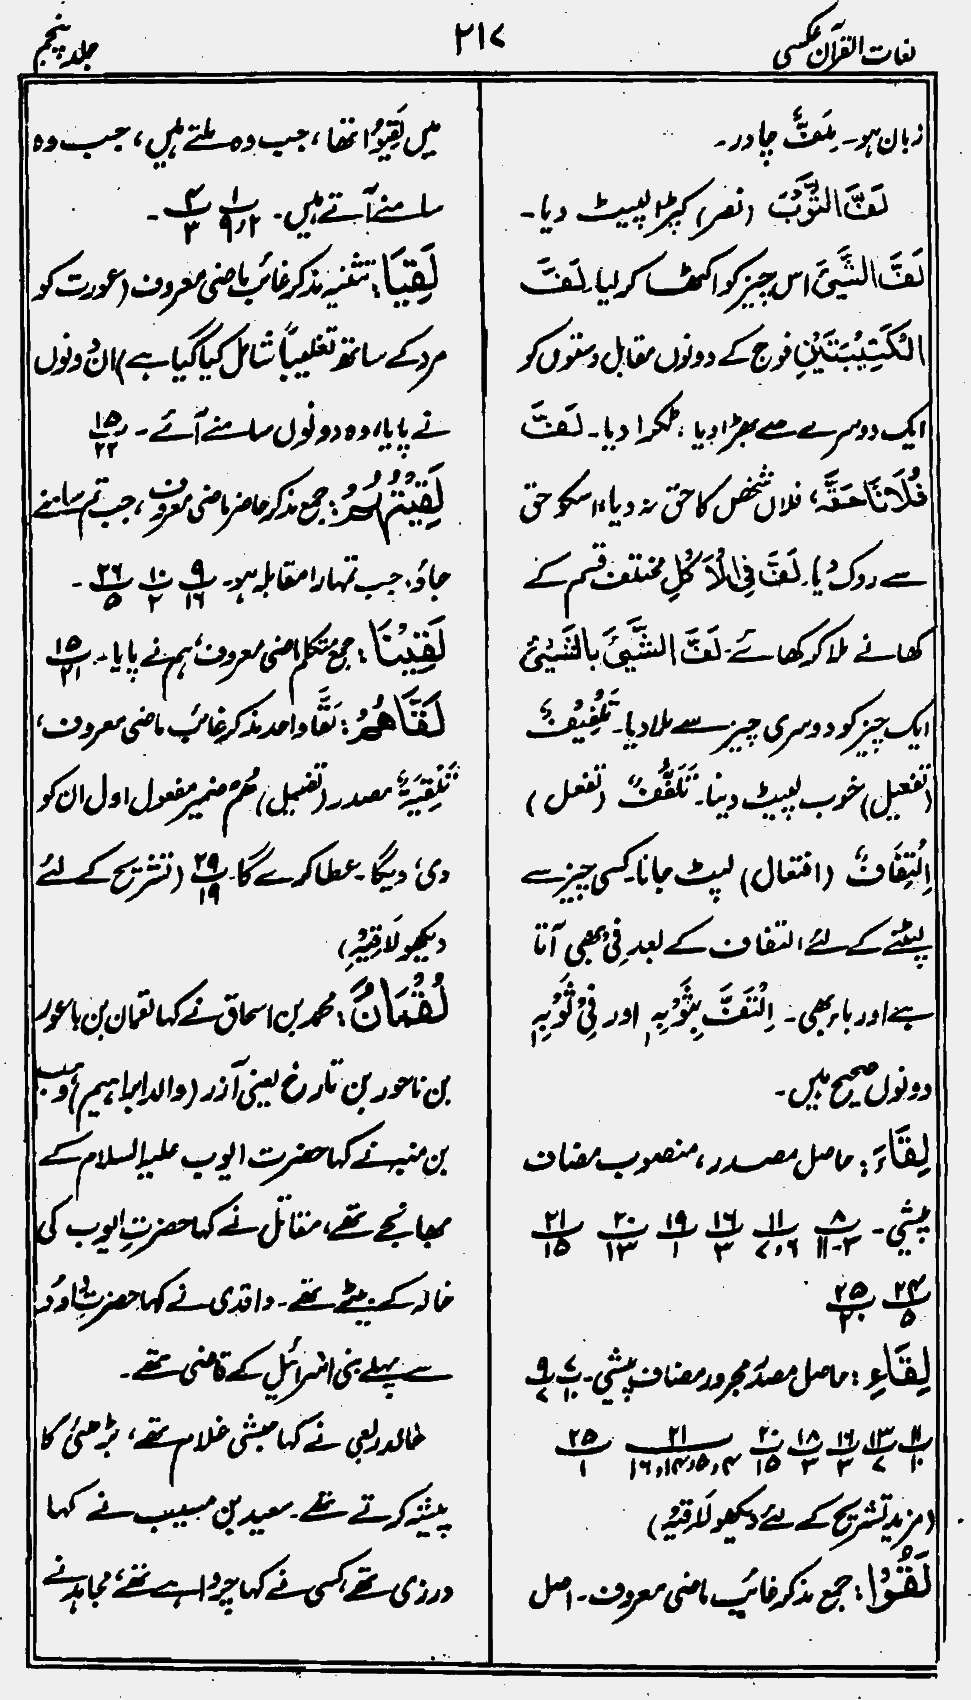 لغات القرآن عکسی
۲۱۷
جلد پنجم
زبان ہو۔ مِلَفٌّ چادر۔
لَفَّ الثَّوْبَ (نصر) کپڑا لپیٹ دیا۔
لَفَّ الشَّیْئَ اس چیز کو اکٹھا کر لیا۔ لَفَّ
الْکَتِیْبَتَیْنِ فوج کے دونوں مقابل دستوں کو
ایک دوسرے سے بھڑا دیا، ٹکرا دیا۔ لَفَّ
فُلَانًا حَقَّہٗ، فلاں شخص کا حق نہ دیا، اسکو حق
سے روک دیا۔ لَفَّ فِی الْاَکْلِ مختلف قسم کے
کھانے ملا کر کھائے۔ لَفَّ الشَّیْئَ بِالشَّیْئِ
ایک چیز کو دوسری چیز سے ملا دیا۔ تَلْفِیْفٌ
(تفعیل) خوب لپیٹ دینا۔ تَلَفُّفٌ (تفعل)
اِلْتِفَافٌ (افتعال) لپٹ جانا۔ کسی چیز سے
لپٹنے کے لئے التفاف کے بعد فِیْ بھی آتا
ہے اور باء بھی۔ اِلْتَفَّ بِثَوْبِہٖ اور فِیْ ثَوْبِہٖ
دونوں صحیح ہیں۔
لِقَآءَ: حاصل مصدر، منصوب مضاف
پیشی۔ ۸/۳-۱۱ ۱۱/۶،۷ ۱۶/۳ ۱۹/۱ ۲۰/۱۳ ۲۱/۱۵
۲۴/۵ ۲۵/۲۰
لِقَآءِ: حاصل مصدر مجرور مضاف پیشی۔ ۷/۱۰ ۹/۷
۱۱/۱۰ ۱۳/۷ ۱۶/۳ ۱۸/۳ ۲۰/۱۵ ۲۱/۴،۵،۱۴،۱۶ ۲۵/۱
(مزید تشریح کے لئے دیکھو لَاقِیْہِ)
لَقُوْا: جمع مذکر غائب ماضی معروف۔ اصل
میں لَقِیُوْا تھا، جب وہ ملتے ہیں، جب وہ
سامنے آتے ہیں۔ ۱/۲،۹ ۴/۳۔
لَقِیَا: تثنیہ مذکر غائب ماضی معروف (عورت کو
مرد کے ساتھ تغلیباً شامل کیا گیا ہے) ان دونوں
نے پایا، وہ دونوں سامنے آئے۔ ۱۵/۲۲
لَقِیْتُمْ: جمع مذکر حاضر ماضی معروف، جب تم سامنے
جاؤ، جب تمہارا مقابلہ ہو۔ ۹/۱۶ ۱۰/۲ ۲۶/۵۔
لَقِیْنَا: جمع متکلم ماضی معروف، ہم نے پایا۔ ۱۵/۲۱
لَقَّاھُمْ: لَقّٰی واحد مذکر غائب ماضی معروف،
تَلْقِیَۃٌ مصدر (تفعیل) ھُمْ ضمیر مفعول اول ان کو
دی، دیگا۔ عطا کرے گا۔ ۲۹/۱۹ (تشریح کے لئے
دیکھو لَاقِیْہِ)
لُقْمَانُ: محمد بن اسحاق نے کہا لقمان بن باعور
بن ناحور بن تارخ یعنی آزر (والد ابراہیم) وہب
بن منبہ نے کہا حضرت ایوب علیہ السلام کے
بھانجے تھے، مقاتل نے کہا حضرت ایوب کی
خالہ کے بیٹے تھے۔ واقدی نے کہا حضرت داؤد
سے پہلے بنی اسرائیل کے قاضی تھے۔
خالد ربعی نے کہا حبشی غلام تھے، بڑھئی کا
پیشہ کرتے تھے۔ سعید بن مسیب نے کہا
درزی تھے، کسی نے کہا چرواہے تھے، مجاہد نے